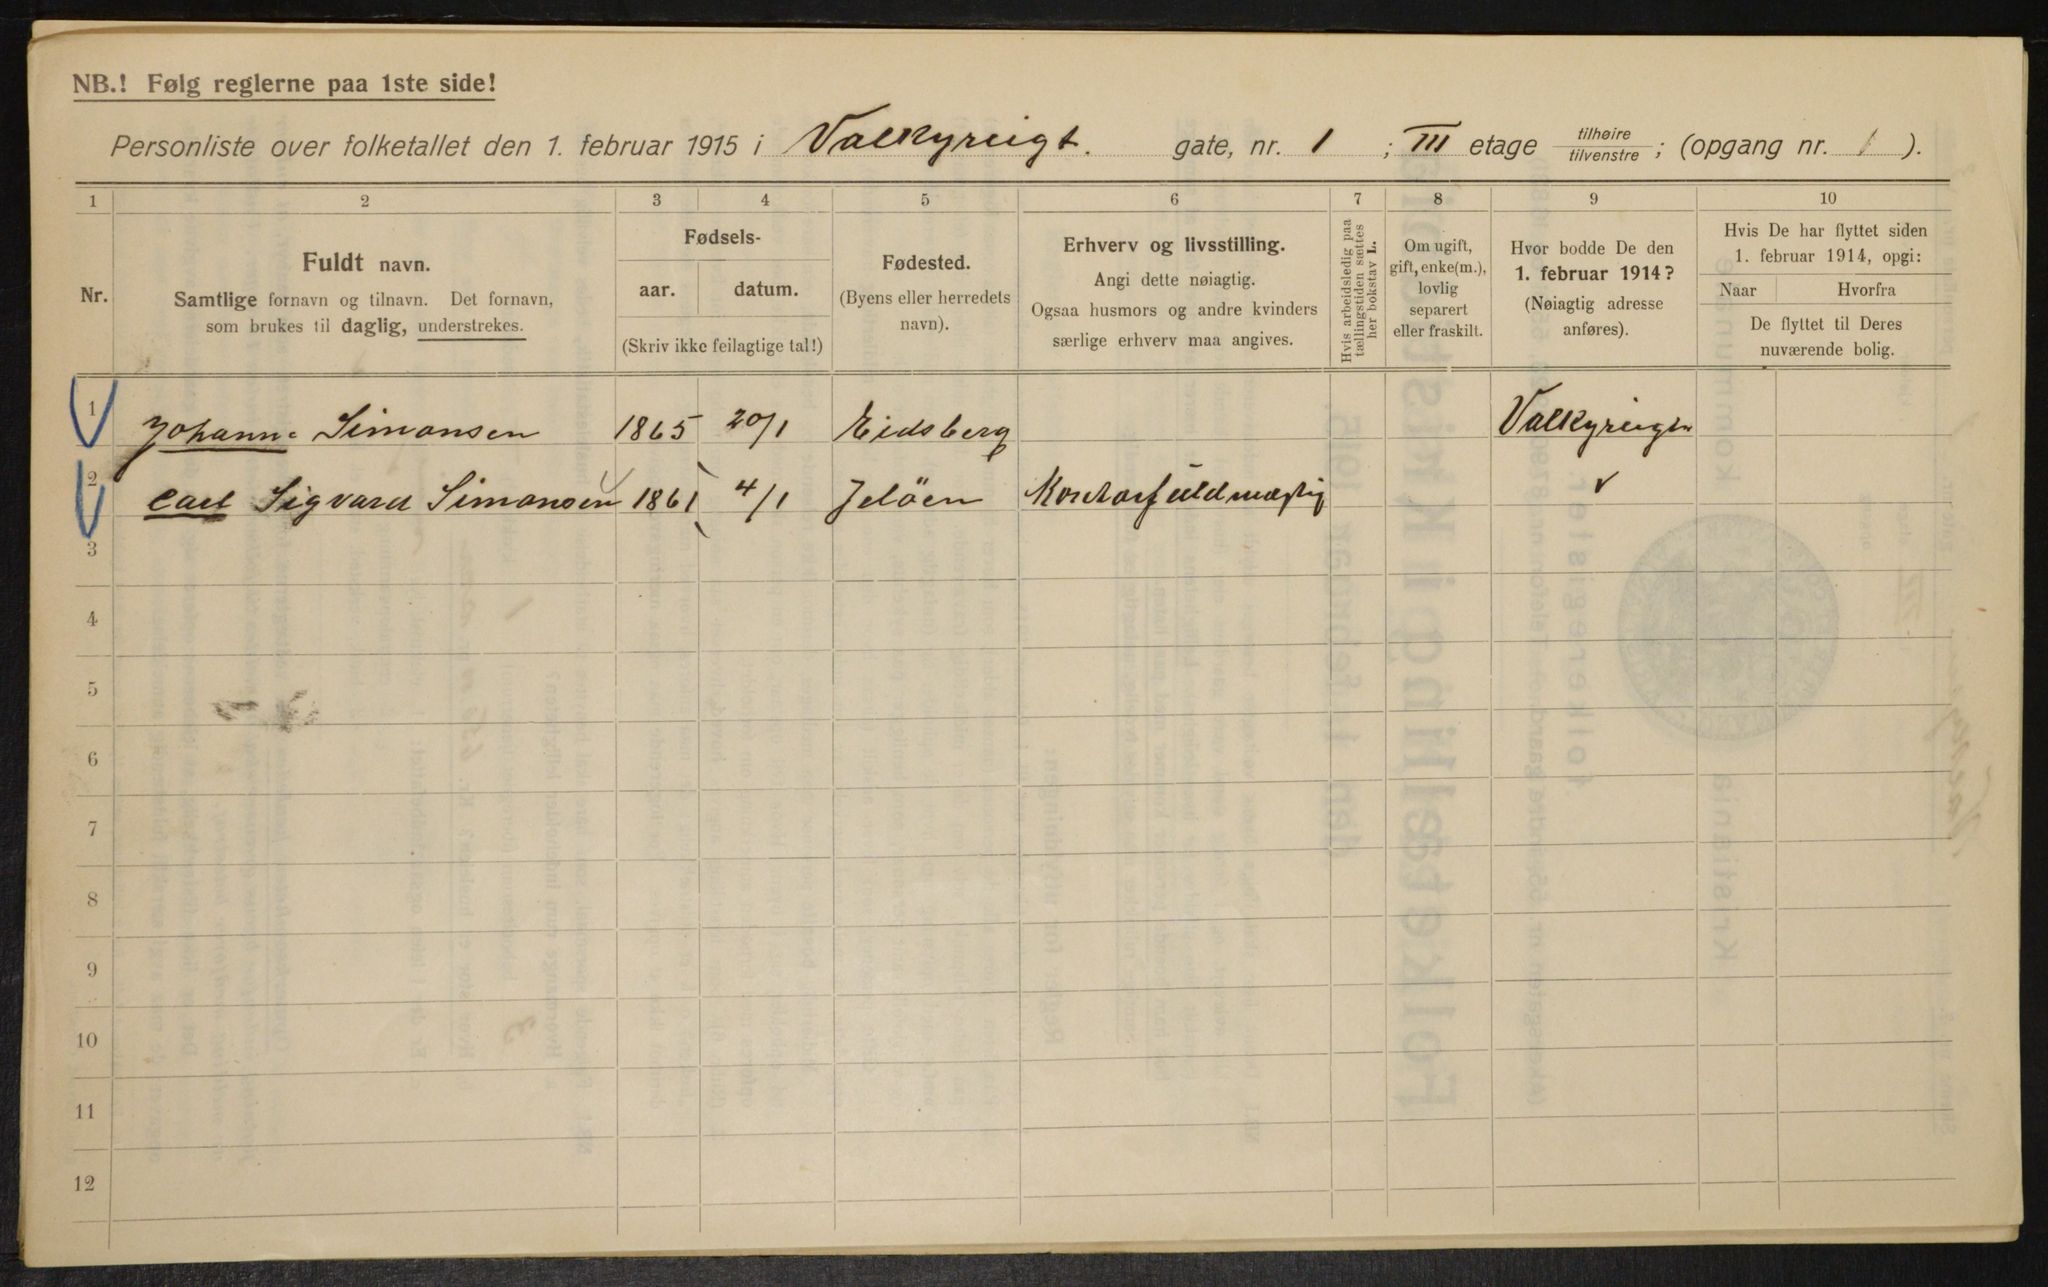 NB.! Følg reglerne paa 1ste side!
Personliste over folketallet den 1. februar 1915 i Valkyreigt. gate, nr. 1 ; III etage tilhøire tilvenstre ; (opgang nr. 1 ).
1 2 3 4 5 6 7 8 9 10
Nr.
Fuldt navn.
Samtlige fornavn og tilnavn. Det fornavn,
som brukes til daglig, understrekes.
Fødsels-
aar. datum.
(Skriv ikke feilagtige tal!)
Fødested.
(Byens eller herredets
navn).
Erhverv og livsstilling.
Angi dette nøiagtig.
Ogsaa husmors og andre kvinders
særlige erhverv maa angives.
Hvis arbeidsledig paa
tællingstiden sættes
her bokstav L.
Om ugift,
gift, enke(m.),
lovlig
separert
eller fraskilt.
Hvor bodde De den
1. februar 1914?
(Nøiagtig adresse
anføres).
Hvis De har flyttet siden
1. februar 1914, opgi:
Naar Hvorfra
De flyttet til Deres
nuværende bolig.
1 Johanne Simonsen 1865 20/1 Eidsberg Valkyreigt
2 Carl Sigvard Simonsen 1861 4/1 Jeløen Kontorfuldmægtig
3
4
5
6
7
8
9
10
11
12